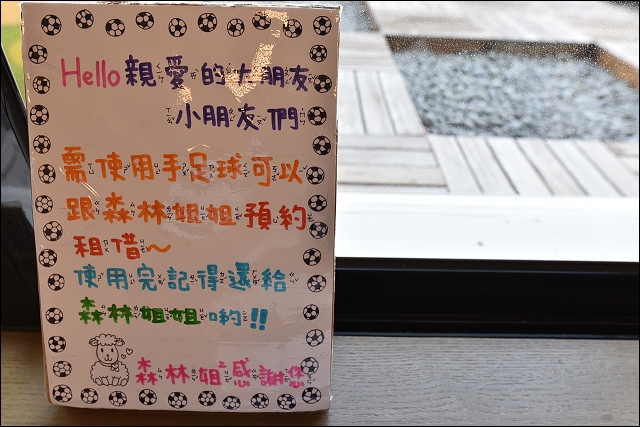 Hello親愛的大朋友
小朋友們
需使用手足球可以
跟森林姐姐預約
租借～
使用完記得還給
森林姐姐喲!!
森林姐²感謝您